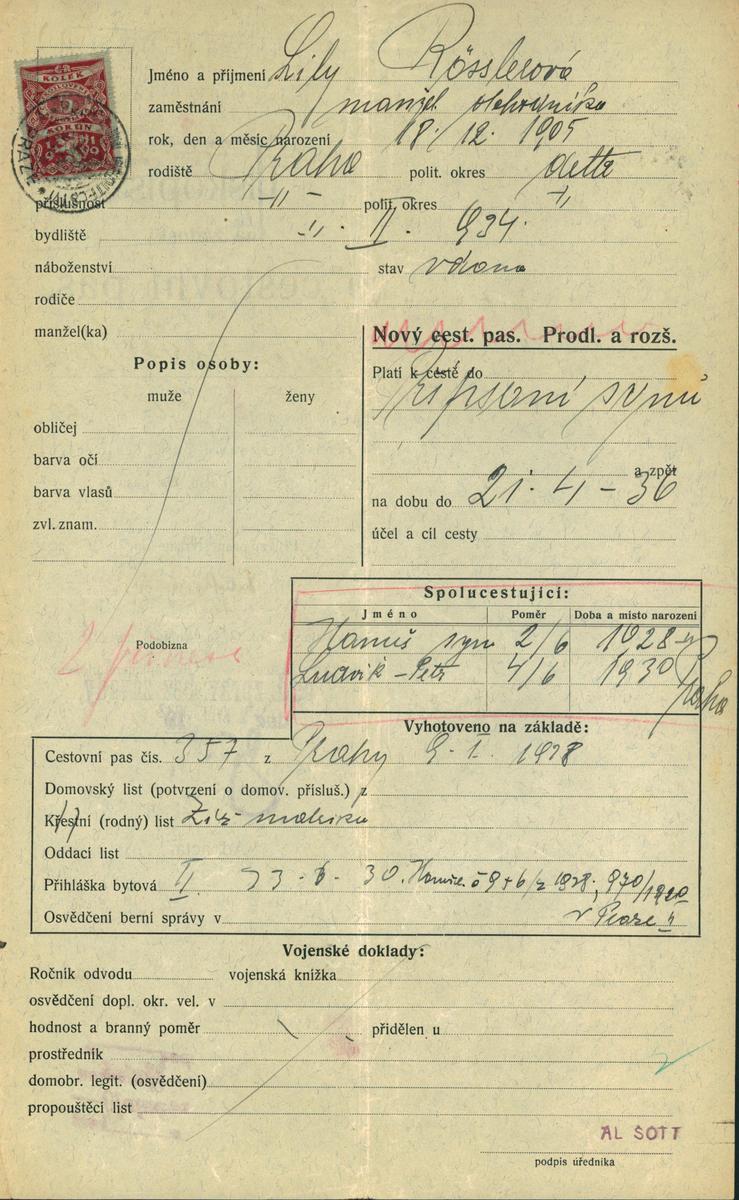 KOLEK
KORUN
PRAZE
Jméno a příjmení Lily Rösslerová
zaměstnání manžel. obchodníka
rok, den a měsíc narození 18./12. 1905
rodiště Praha polit. okres dette
příslušnost -"- polit. okres -"-
bydliště -"- II. 934.
náboženství stav vdana
rodiče
manžel(ka)
Nový cest. pas. Prodl. a rozš.
Popis osoby:
muže ženy
obličej
barva očí
barva vlasů
zvl. znam.
Platí k cestě do
Připsání synů
a zpět
na dobu do 21. 4 - 36
účel a cíl cesty
Podobizna
Spolucestující:
Jméno Poměr Doba a místo narození
Hanuš syn 2/6 1928
Ludvík - Petr 4/6 1930 Praha
Vyhotoveno na základě:
Cestovní pas čís. 357 z Prahy 9. I. 1928
Domovský list (potvrzení o domov. přísluš.) z
Křestní (rodný) list Žid. matrika
Oddací list
Přihláška bytová II. 23. 6. 30.
Osvědčení berní správy v v Praze
Vojenské doklady:
Ročník odvodu vojenská knížka
osvědčení dopl. okr. vel. v
hodnost a branný poměr přidělen u
prostředník
domobr. legit. (osvědčení)
propouštěcí list
AL SOTT
podpis úředníka